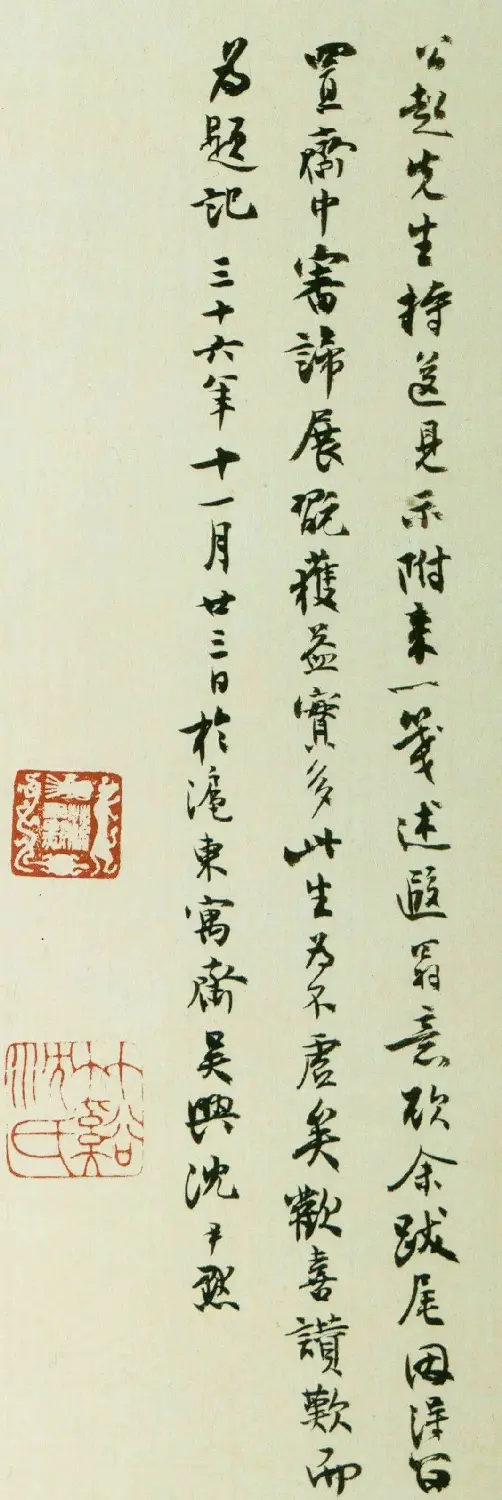 公起先生持送見示附来一箋述遐翁意欲余跋尾因得留
置齋中審諦展翫獲益實多此生為不虛矣歡喜讚歎而
為題記 三十六年十一月廿三日於滬東寓齋吳興沈尹默
竹谿沈氏